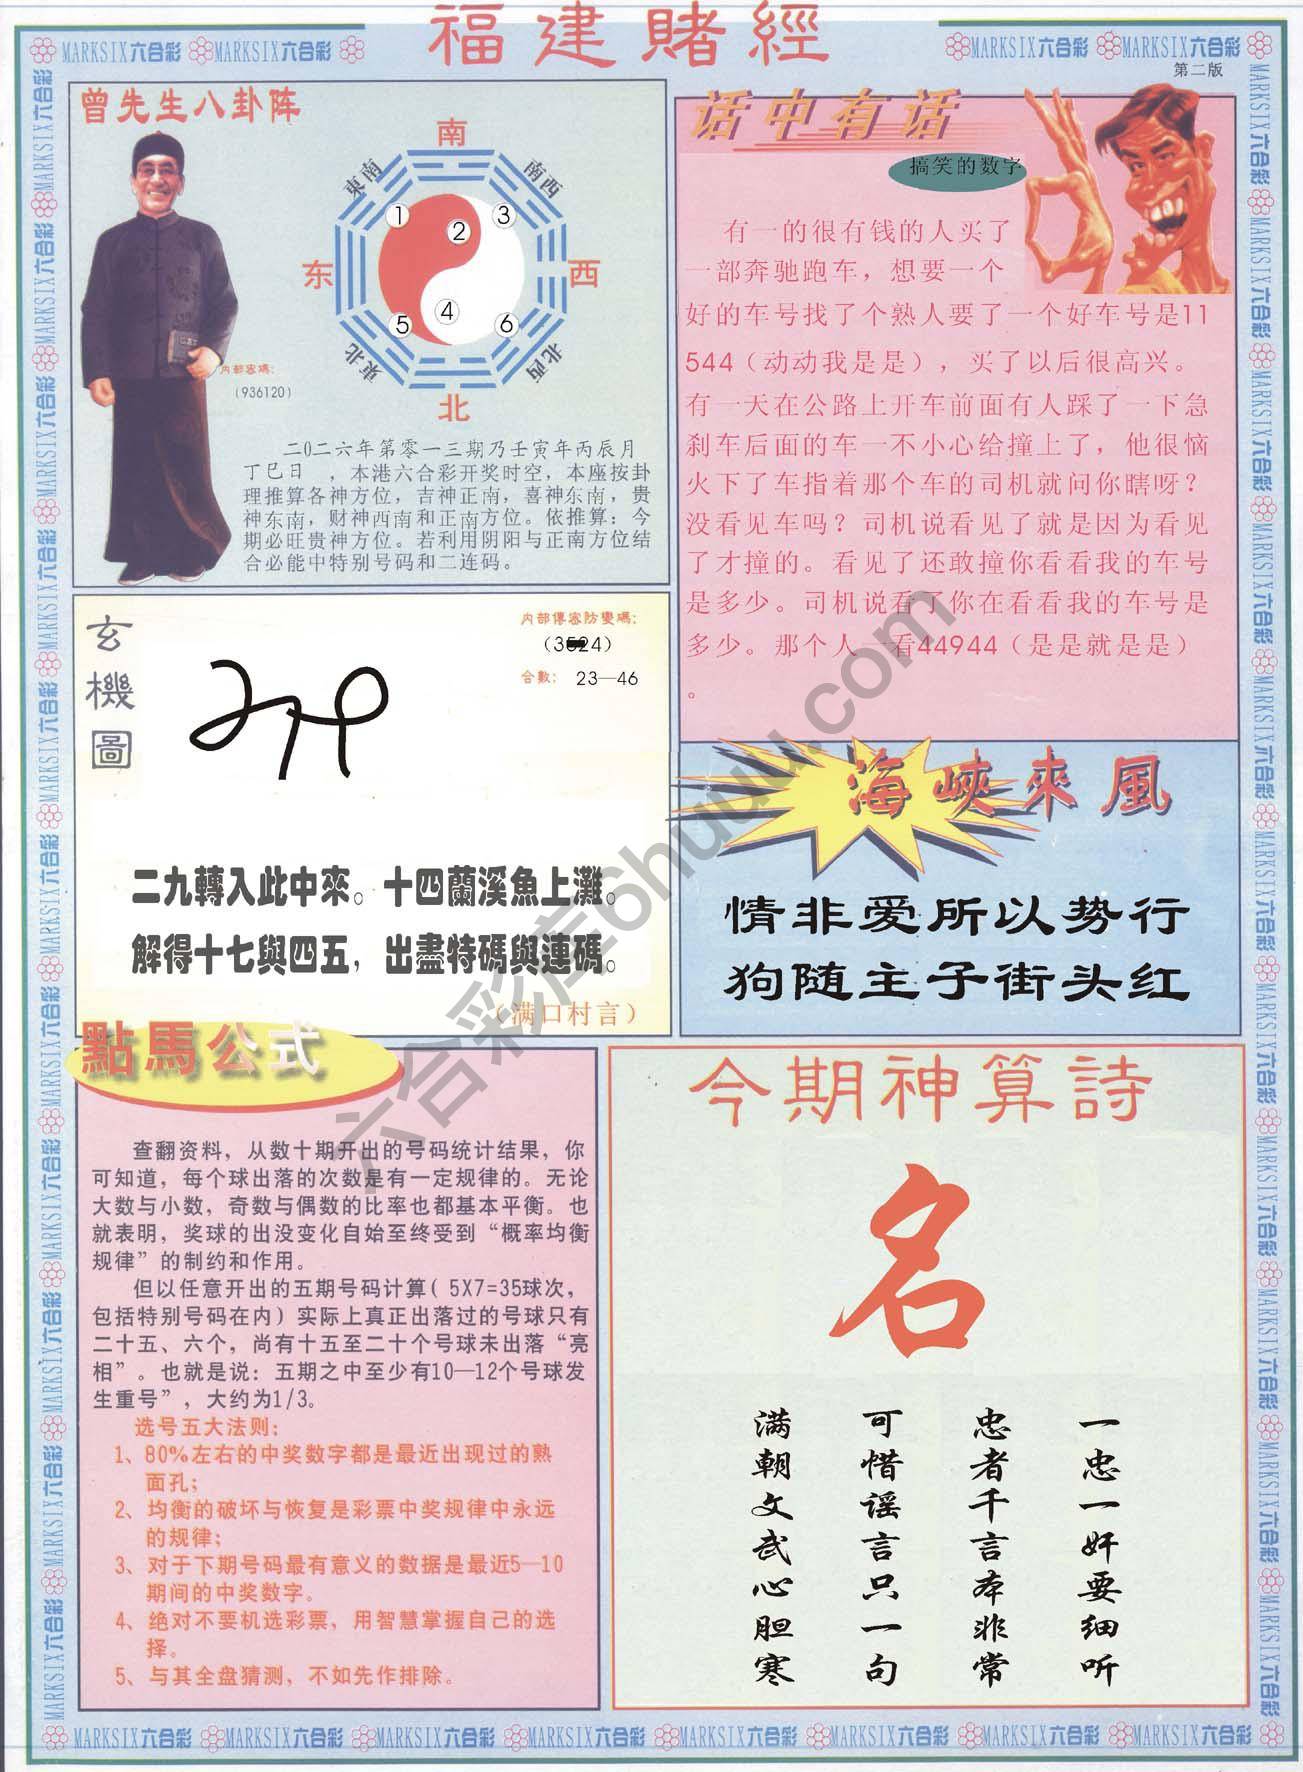 福建賭經
MARKSIX六合彩 MARKSIX六合彩
MARKSIX六合彩 MARKSIX六合彩
第二版
曾先生八卦阵
南
東南
南西
1
2
3
东
西
4
5
6
東北
北西
北
内部密碼:
(936120)
二0二六年第零一三期乃壬寅年丙辰月
丁巳日 ,本港六合彩开奖时空,本座按卦
理推算各神方位,吉神正南,喜神东南,贵
神东南,财神西南和正南方位。依推算:今
期必旺贵神方位。若利用阴阳与正南方位结
合必能中特别号码和二连码。
话中有话
搞笑的数字
有一的很有钱的人买了
一部奔驰跑车,想要一个
好的车号找了个熟人要了一个好车号是11
544(动动我是是),买了以后很高兴。
有一天在公路上开车前面有人踩了一下急
刹车后面的车一不小心给撞上了,他很恼
火下了车指着那个车的司机就问你瞎呀?
没看见车吗?司机说看见了就是因为看见
了才撞的。看见了还敢撞你看看我的车号
是多少。司机说看了你在看看我的车号是
多少。那个人一看44944(是是就是是)
。
玄機圖
内部傳密防變碼:
合數: 23—46
二九轉入此中來。十四蘭溪魚上灘。
解得十七與四五,出盡特碼與連碼。
(满口村言)
海峽來風
情非爱所以势行
狗随主子街头红
點馬公式
查翻资料,从数十期开出的号码统计结果,你
可知道,每个球出落的次数是有一定规律的。无论
大数与小数,奇数与偶数的比率也都基本平衡。也
就表明,奖球的出没变化自始至终受到“概率均衡
规律”的制约和作用。
但以任意开出的五期号码计算(5X7=35球次,
包括特别号码在内)实际上真正出落过的号球只有
二十五、六个,尚有十五至二十个号球未出落“亮
相”。也就是说:五期之中至少有10—12个号球发
生重号”,大约为1/3。
选号五大法则:
1、80%左右的中奖数字都是最近出现过的熟
面孔;
2、均衡的破坏与恢复是彩票中奖规律中永远
的规律;
3、对于下期号码最有意义的数据是最近5—10
期间的中奖数字。
4、绝对不要机选彩票,用智慧掌握自己的选
择。
5、与其全盘猜测,不如先作排除。
今期神算詩
名
一忠一奸要细听
忠者千言本非常
可惜谣言只一句
满朝文武心胆寒
MARKSIX六合彩 MARKSIX六合彩 MARKSIX六合彩 MARKSIX六合彩 MARKSIX六合彩 MARKSIX六合彩 MARKSIX六合彩 MARKSIX六合彩
六合彩库6huuu.com